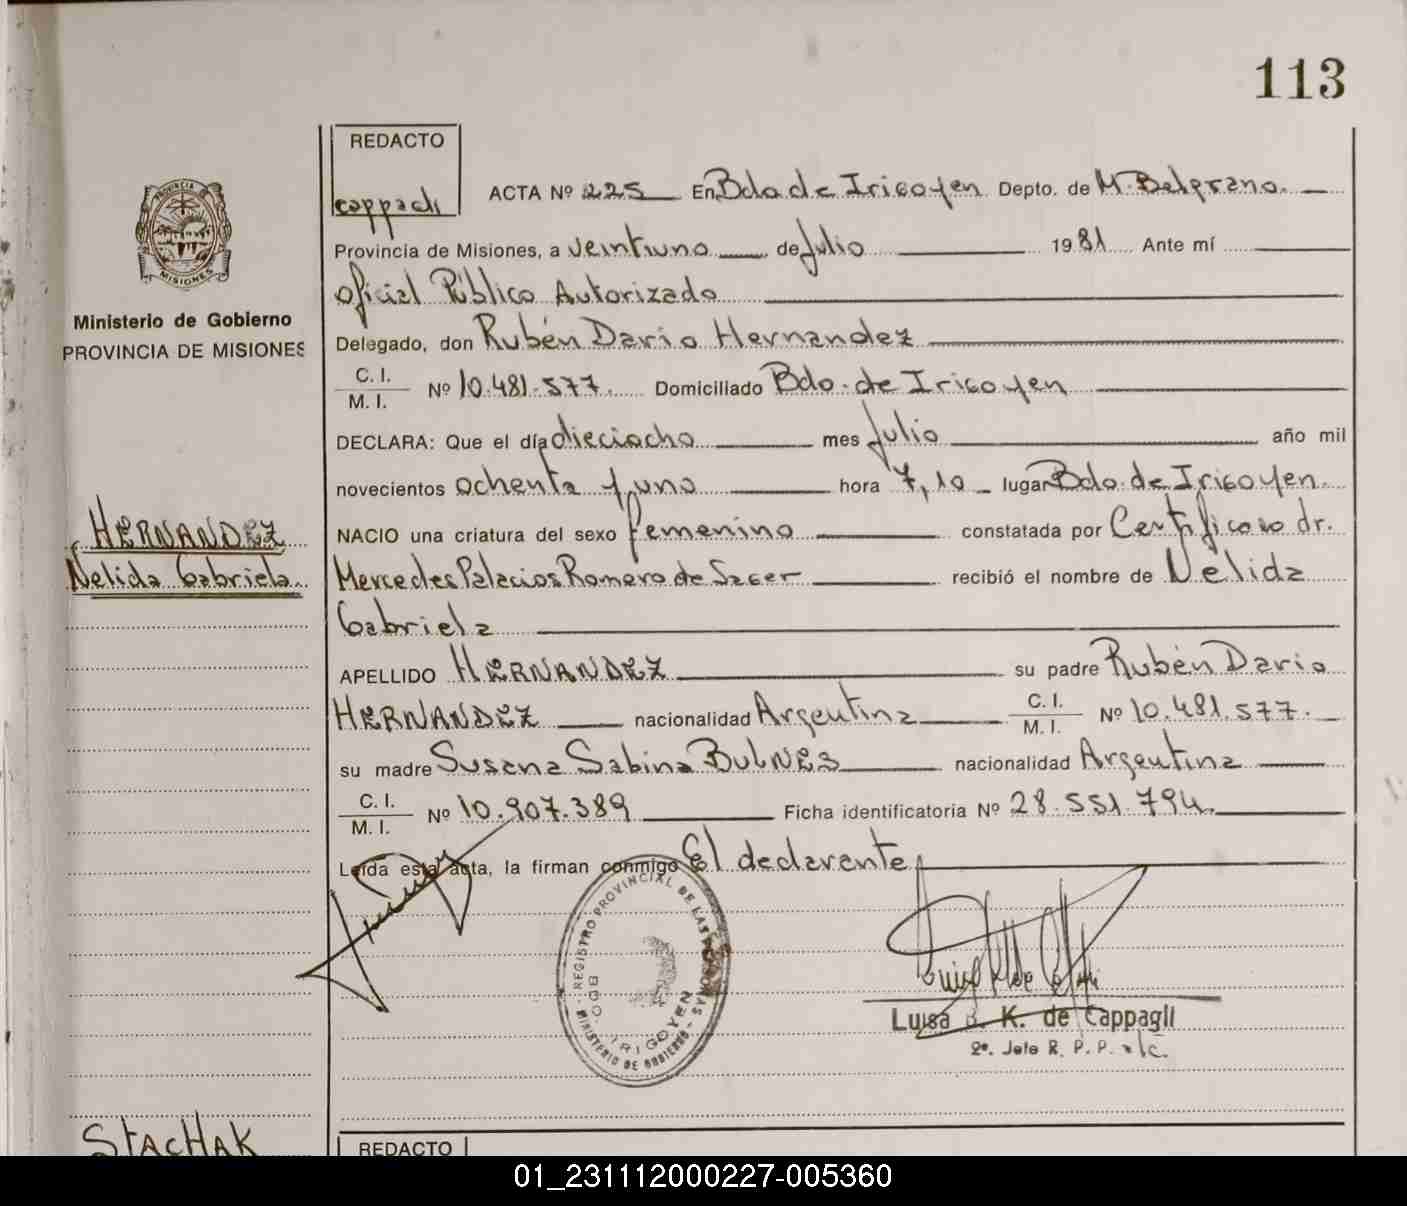 113
REDACTO
cappagli
ACTA Nº 225 En Bdo de Irigoyen Depto. de M. Belgrano.
Provincia de Misiones, a veintiuno de Julio 1981 Ante mí
Oficial Público Autorizado
Delegado, don Rubén Dario Hernandez
C. I.
M. I. Nº 10.481.577. Domiciliado Bdo. de Irigoyen
DECLARA: Que el día dieciocho mes Julio año mil
novecientos ochenta y uno hora 7,10 lugar Bdo. de Irigoyen.
NACIO una criatura del sexo femenino constatada por Certificado dr.
Mercedes Palacios Romero de Sager recibió el nombre de Nelida
Gabriela
APELLIDO HERNANDEZ su padre Rubén Dario
HERNANDEZ nacionalidad Argentina C. I.
M. I. Nº 10.481.577.
su madre Susana Sabina BULNES nacionalidad Argentina
C. I.
M. I. Nº 10.907.389 Ficha identificatoria Nº 28.551.794.
Leída esta acta, la firman conmigo El declarante
PROVINCIA
MISIONES
Ministerio de Gobierno
PROVINCIA DE MISIONES
HERNANDEZ
Nelida Gabriela
REGISTRO PROVINCIAL DE LAS PERSONAS
MINISTERIO DE GOBIERNO
BDO. IRIGOYEN
Luisa B. K. de Cappagli
2º. Jefe R. P. P.
STACHAK
REDACTO
01_231112000227-005360